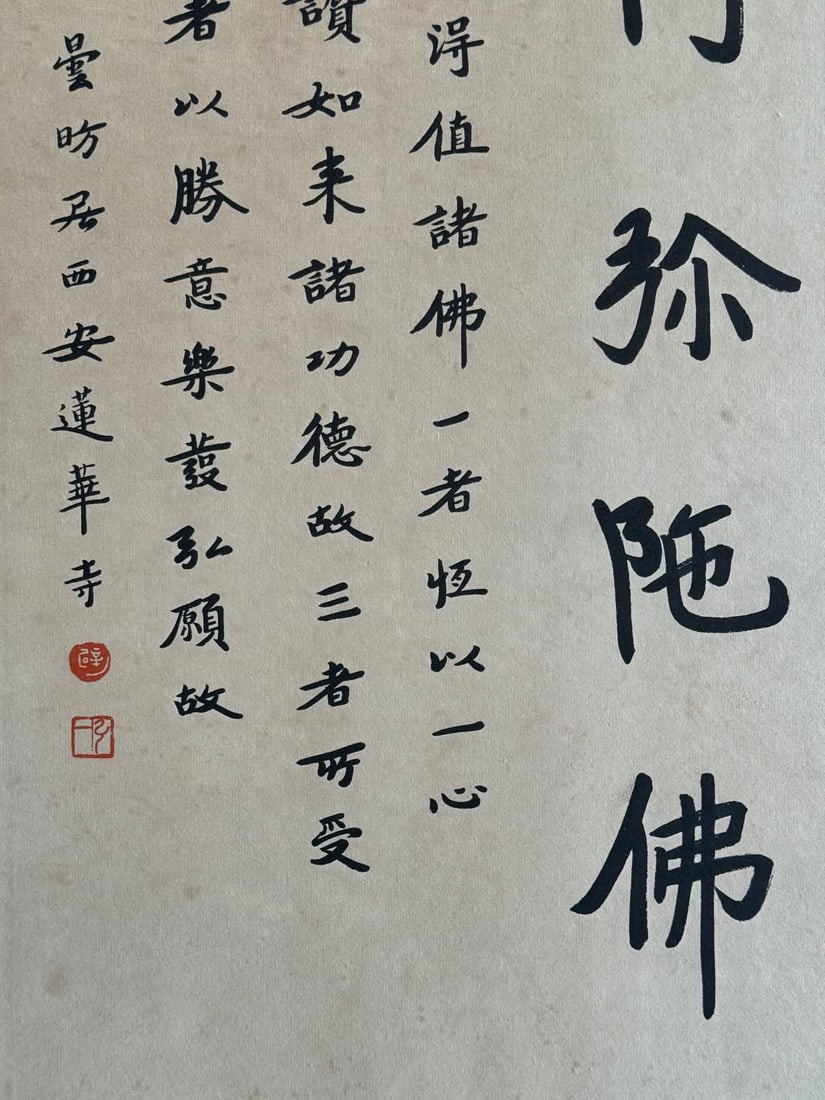 弥陁佛
淂值諸佛一者恆以一心
讚如来諸功德故三者所受
者以勝意樂發弘願故
曇昉居西安蓮華寺